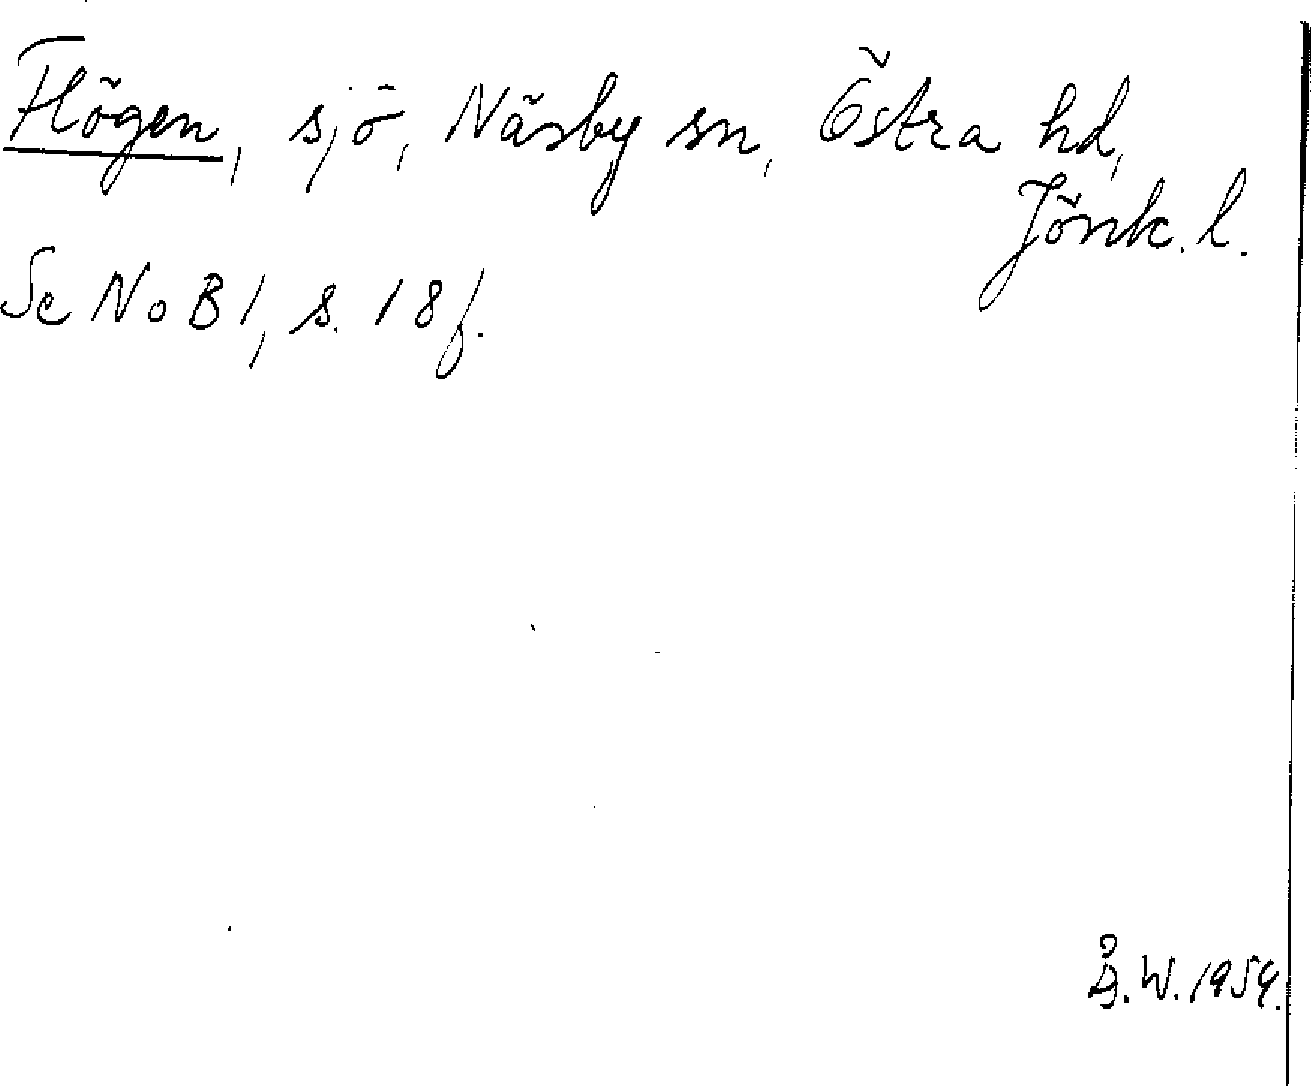 Flögen, sjö, Näsby sn, Östra hd,
Jönk. l.
Se NoB 1, s. 18 f.
Å. W. 1954.